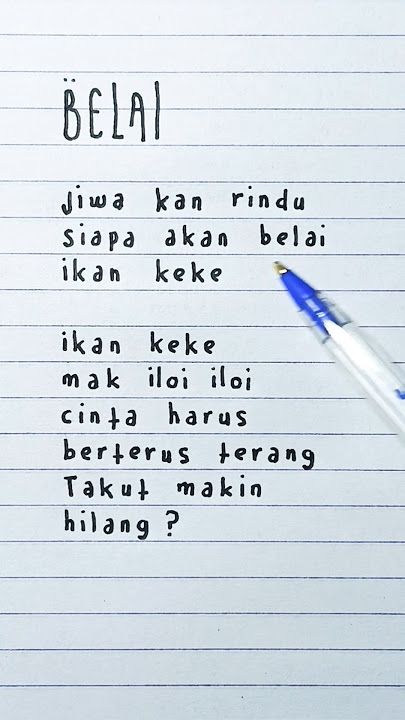 BELAI
jiwa kan rindu
siapa akan belai
ikan keke
ikan keke
mak iloi iloi
cinta harus
berterus terang
Takut makin
hilang ?